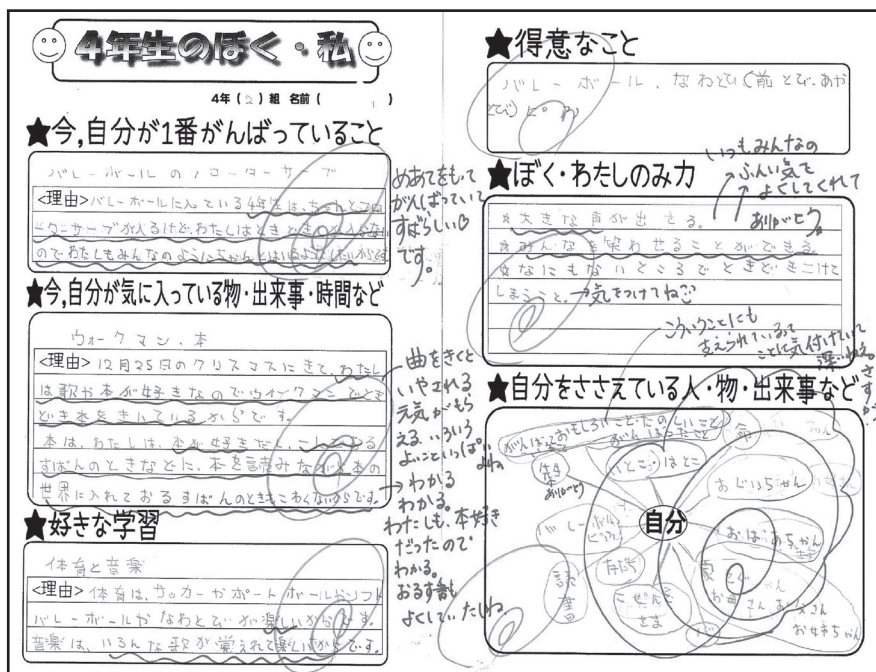 4年生のぼく・私
4年(2)組 名前( )
★今,自分が1番がんばっていること
バレーボールのフローターサーブ
<理由>バレーボールに入っている4年生は、ちゃんとフロ
ーターサーブが入るけど、わたしはときどき
のでわたしもみんなのようにちゃんとはいるようにしたいからです
めあてをもって
がんばっていて
すばらしい♡
です。
★今,自分が気に入っている物・出来事・時間など
ウォークマン、本
<理由>12月25日のクリスマスにきて、わたし
は歌や本が好きなのでウォークマンでときど
き本をきいているからです。
本は、わたしは、本が好きだし、
すばんのときなどに、本を読みながら本の
世界に入れておるすばんのときもこわくないからです。
曲をきくと
いやされる
元気がもら
える いろいろ
よいこといっぱい
よね。
→わかる
わかる。
わたしも、本好き
だったので
わかる。
おるす番も
よくしていたしね。
★好きな学習
体育と音楽
<理由>体育は、サッカーやポートボールやソフト
バレーボールやなわとびが楽しいからです。
音楽は、いろんな歌が覚えれて楽しいからです。
★得意なこと
バレーボール、なわとび(前とび、あや
とび)
★ぼく・わたしのみ力
いつもみんなの
ふんい気を
よくしてくれて
ありがとう。
☆大きな声が出せる。
☆みんなを笑わせることができる。
☆なにもないところでときどきこけて
しまうこと。→気をつけてね
こういうことにも
支えられているって
ことに気付けていて
深いねえ。
さすが
★自分をささえている人・物・出来事など
自分
おもしろいこと・たのしいこと
がんばったこと
いとこ・はとこ
命
先生
ありがとう
おじいちゃん
おばあちゃん
バレーボール
読書
友だち
ごせんぞ
さま
家ぞく
お母さん
お姉ちゃん